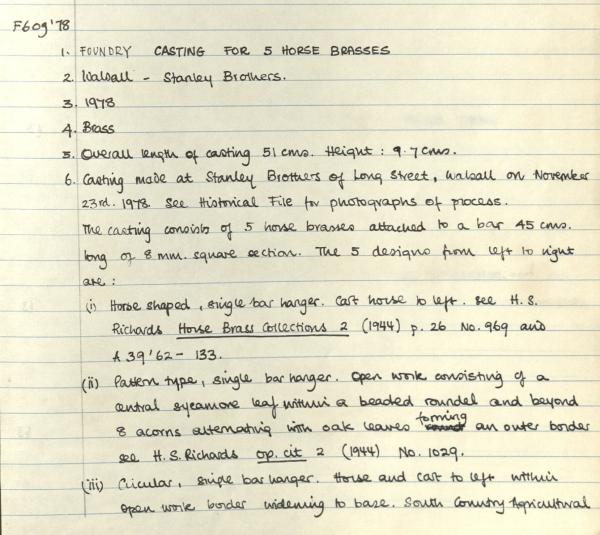 F609'78
1. FOUNDRY CASTING FOR 5 HORSE BRASSES
2. Walsall - Stanley Brothers.
3. 1978
4. Brass
5. Overall length of casting 51 cms. Height : 9.7 cms.
6. Casting made at Stanley Brothers of Long Street, Walsall on November
23rd. 1978. See Historical File for photographs of process.
The casting consists of 5 horse brasses attached to a bar 45 cms.
long of 8 mm. square section. The 5 designs from left to right
are :
(i) Horse shaped, single bar hanger. Cart horse to left. See H. S.
Richards Horse Brass Collections 2 (1944) p. 26 No. 969 and
A 39'62 - 133.
(ii) Pattern type, single bar hanger. Open work consisting of a
central sycamore leaf within a beaded roundel and beyond
8 acorns alternating with oak leaves forming an outer border
see H. S. Richards op. cit 2 (1944) No. 1029.
(iii) Circular, single bar hanger. Horse and cart to left within
open work border widening to base. South Country Agricultural